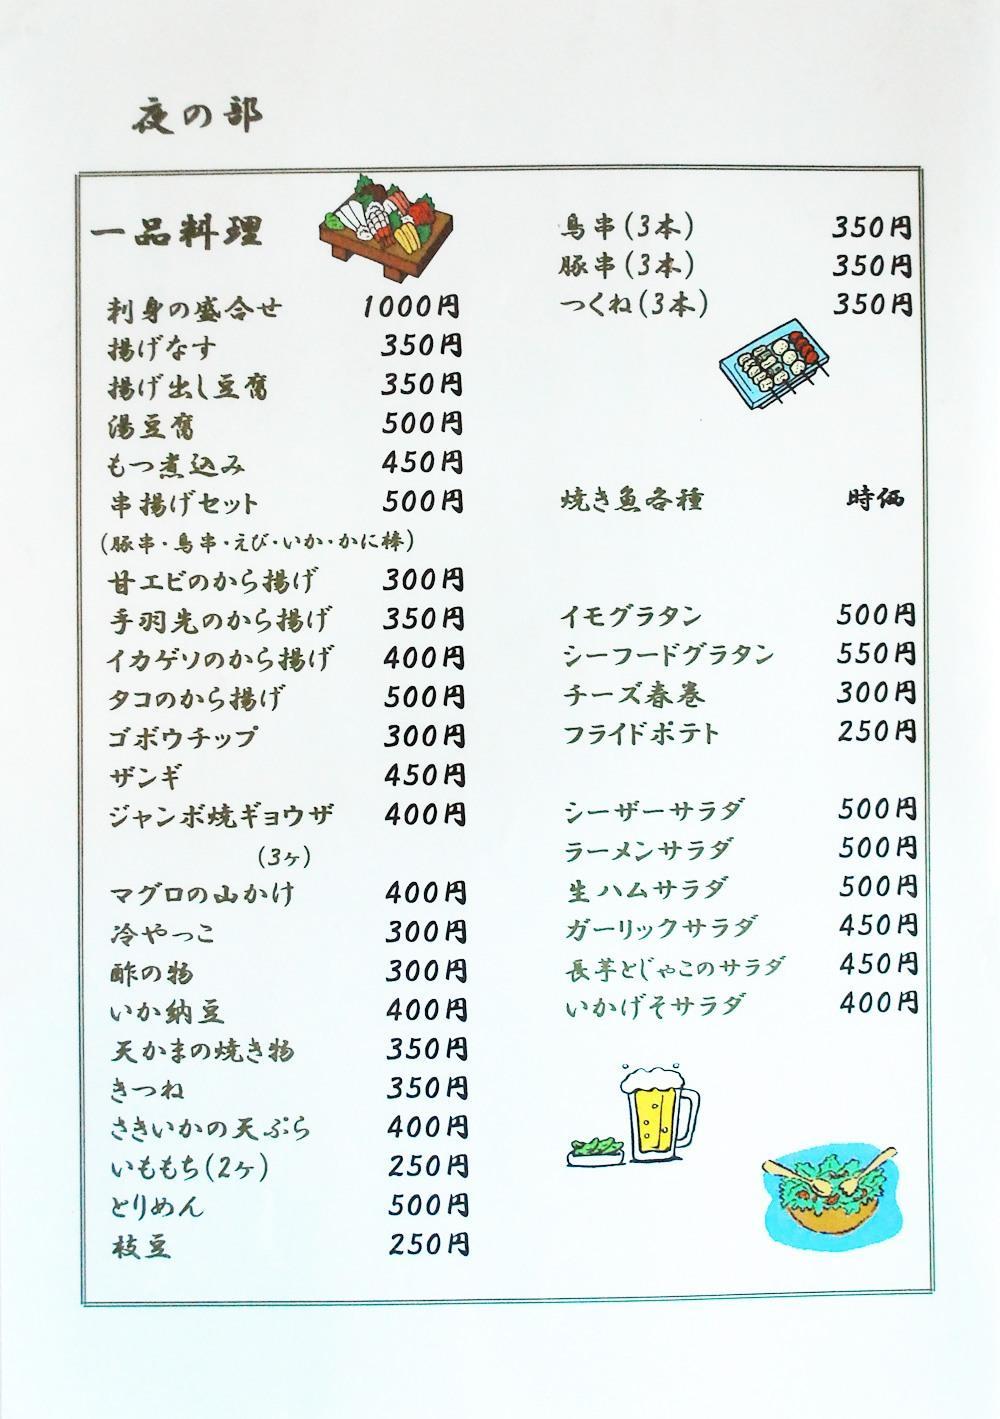 夜の部
一品料理
刺身の盛合せ 1000円
揚げなす 350円
揚げ出し豆腐 350円
湯豆腐 500円
もつ煮込み 450円
串揚げセット 500円
(豚串・鳥串・えび・いか・かに棒)
甘エビのから揚げ 300円
手羽先のから揚げ 350円
イカゲソのから揚げ 400円
タコのから揚げ 500円
ゴボウチップ 300円
ザンギ 450円
ジャンボ焼ギョウザ 400円
(3ヶ)
マグロの山かけ 400円
冷やっこ 300円
酢の物 300円
いか納豆 400円
天かまの焼き物 350円
きつね 350円
さきいかの天ぷら 400円
いももち(2ヶ) 250円
とりめん 500円
枝豆 250円
鳥串(3本) 350円
豚串(3本) 350円
つくね(3本) 350円
焼き魚各種 時価
イモグラタン 500円
シーフードグラタン 550円
チーズ春巻 300円
フライドポテト 250円
シーザーサラダ 500円
ラーメンサラダ 500円
生ハムサラダ 500円
ガーリックサラダ 450円
長芋とじゃこのサラダ 450円
いかげそサラダ 400円